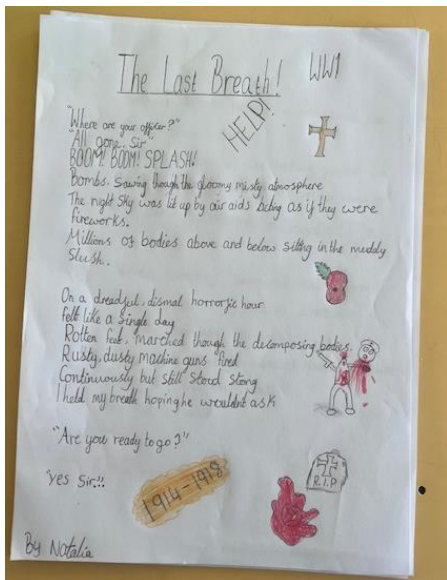 The Last Breath!
WW1
HELP!
"Where are your officer?"
"All gone, Sir"
BOOM! BOOM! SPLASH!
Bombs, Sawing though the gloomy misty atmosphere
The night Sky was lit up by air aids acting as if they were
fireworks.
Millions of bodies above and below sitting in the muddy
Slush.
On a dreadful, dismal horrorfic hour
felt like a single day
Rotten feet, marched though the decomposing bodies.
Rusty, dusty machine guns fired
Continuously but still stood stong
I held my breath hoping he wouldn't ask
"Are you ready to go?"
"Yes Sir!!
1914-1918
R.I.P
By Natalia